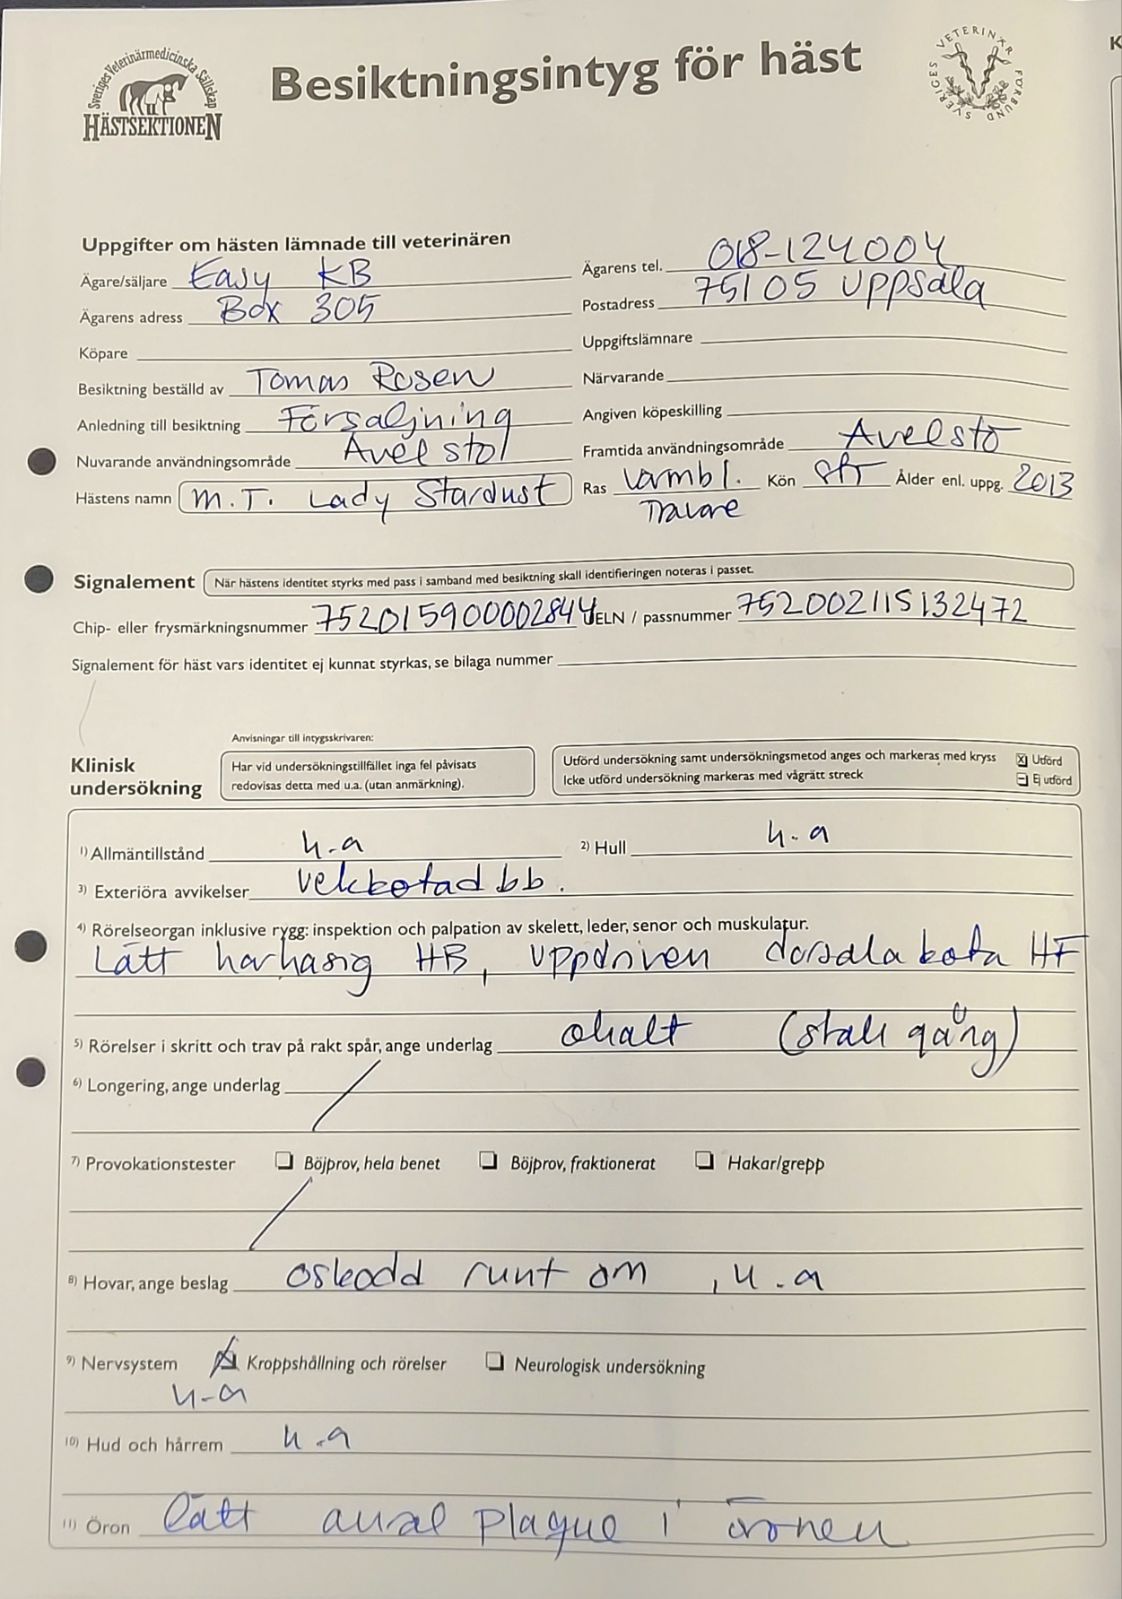 Sveriges Veterinärmedicinska Sällskap
HÄSTSEKTIONEN
Besiktningsintyg för häst
SVERIGES VETERINÄRFÖRBUND
K
Uppgifter om hästen lämnade till veterinären
Ägare/säljare Easy KB Ägarens tel. 018-124004
Ägarens adress Box 305 Postadress 75105 Uppsala
Köpare Uppgiftslämnare
Besiktning beställd av Tomas Rosen Närvarande
Anledning till besiktning Försäljning Angiven köpeskilling
Nuvarande användningsområde Avel sto Framtida användningsområde Avelsto
Hästens namn M.T. Lady Stardust Ras Varmbl. Kön sto Ålder enl. uppg. 2013
Travare
Signalement När hästens identitet styrks med pass i samband med besiktning skall identifieringen noteras i passet.
Chip- eller frysmärkningsnummer 752015900002844 UELN / passnummer 752002115132472
Signalement för häst vars identitet ej kunnat styrkas, se bilaga nummer
Anvisningar till intygsskrivaren:
Klinisk undersökning
Har vid undersökningstillfället inga fel påvisats redovisas detta med u.a. (utan anmärkning).
Utförd undersökning samt undersökningsmetod anges och markeras med kryss X Utförd
Icke utförd undersökning markeras med vågrätt streck – Ej utförd
1) Allmäntillstånd u.a 2) Hull u.a
3) Exteriöra avvikelser vekkotad bb.
4) Rörelseorgan inklusive rygg: inspektion och palpation av skelett, leder, senor och muskulatur.
Lätt harhasig HB, uppdriven dorsala kota HF
5) Rörelser i skritt och trav på rakt spår, ange underlag ohalt (stall gång)
6) Longering, ange underlag
7) Provokationstester Böjprov, hela benet Böjprov, fraktionerat Hakar/grepp
8) Hovar, ange beslag oskodd runt om, u.a
9) Nervsystem Kroppshållning och rörelser Neurologisk undersökning
u-a
10) Hud och hårrem u.a
11) Öron lätt aural plaque i öronen